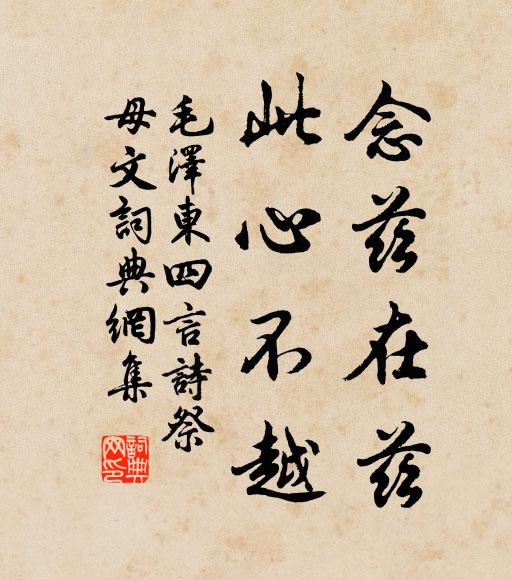 念茲在茲
此心不越
毛澤東四言詩祭
母文詞典網集
詞典网印